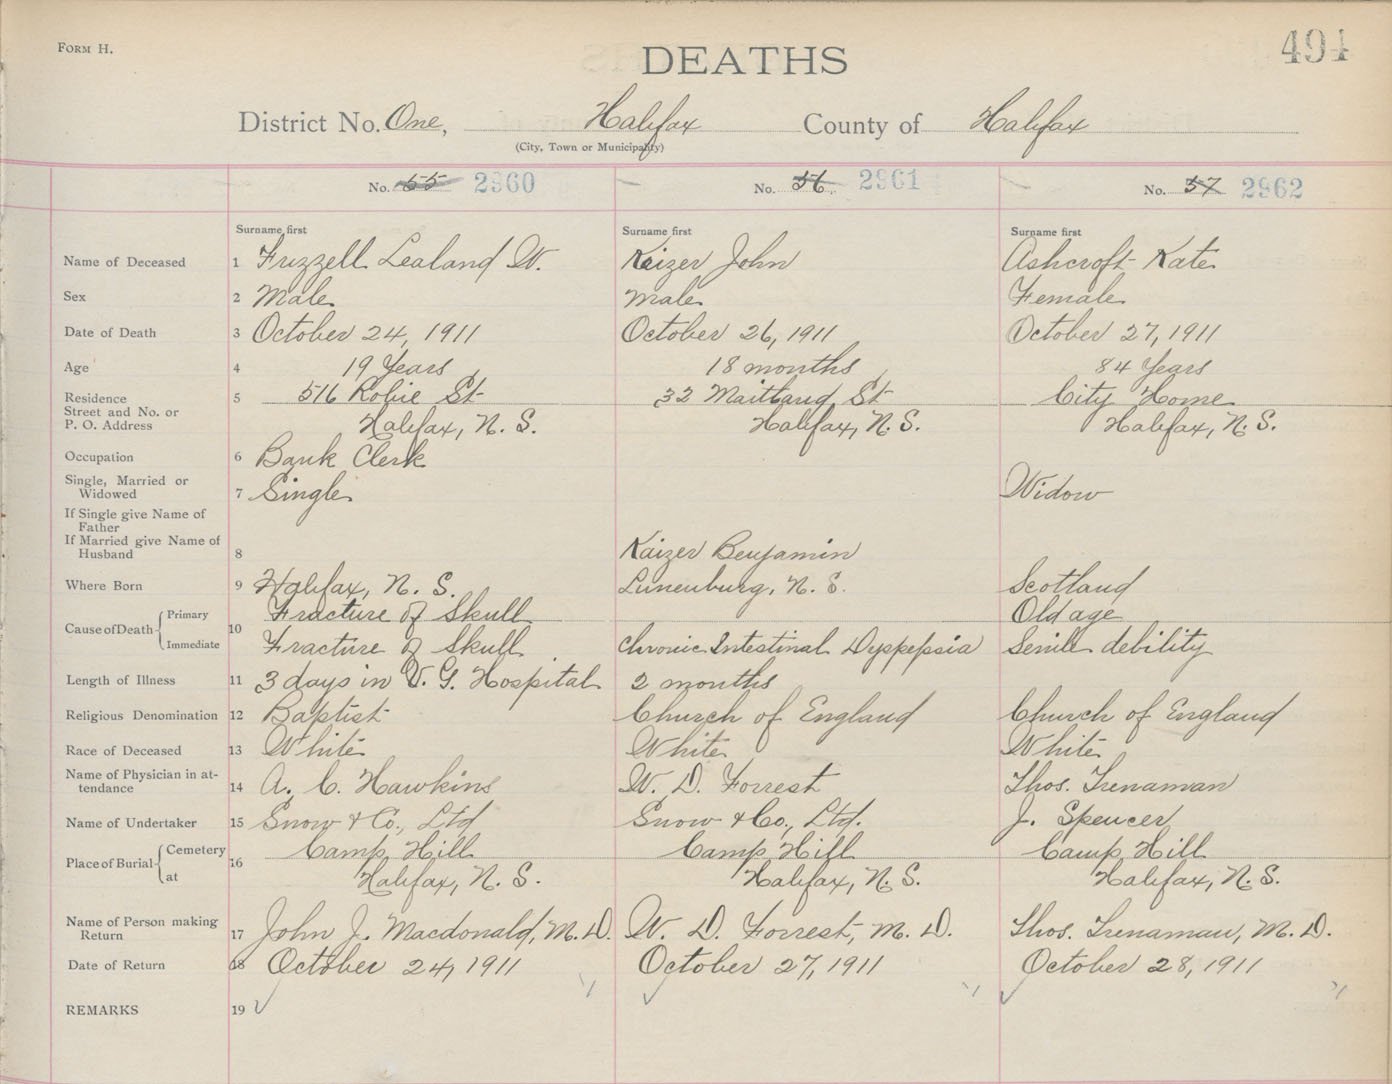 FORM H.
DEATHS
494
District No. One, Halifax County of Halifax
(City, Town or Municipality)
No. 55 2960
No. 56 2961
No. 57 2962
Surname first
Surname first
Surname first
Name of Deceased 1 Frizzell Lealand W. Keizer John Ashcroft Kate
Sex 2 Male Male Female
Date of Death 3 October 24, 1911 October 26, 1911 October 27, 1911
Age 4 19 Years 18 months 84 Years
Residence 5 516 Robie St 32 Maitland St City Home
Street and No. or
P. O. Address Halifax, N. S. Halifax, N. S. Halifax, N. S.
Occupation 6 Bank Clerk
Single, Married or
Widowed 7 Single Widow
If Single give Name of
Father
If Married give Name of
Husband 8 Kaizer Benjamin
Where Born 9 Halifax, N. S. Lunenburg, N. S. Scotland
Cause of Death 10 Primary Fracture of Skull Old age
Immediate Fracture of Skull Chronic Intestinal Dyspepsia Senile debility
Length of Illness 11 3 days in V. G. Hospital 2 months
Religious Denomination 12 Baptist Church of England Church of England
Race of Deceased 13 White White White
Name of Physician in at-
tendance 14 A. C. Hawkins W. D. Forrest Thos. Trenaman
Name of Undertaker 15 Snow & Co., Ltd Snow & Co., Ltd. J. Spencer
Place of Burial 16 Cemetery Camp Hill Camp Hill Camp Hill
at Halifax, N. S. Halifax, N. S. Halifax, N. S.
Name of Person making
Return 17 John J. Macdonald, M. D. W. D. Forrest, M. D. Thos. Trenaman, M. D.
Date of Return 18 October 24, 1911 October 27, 1911 October 28, 1911
REMARKS 19